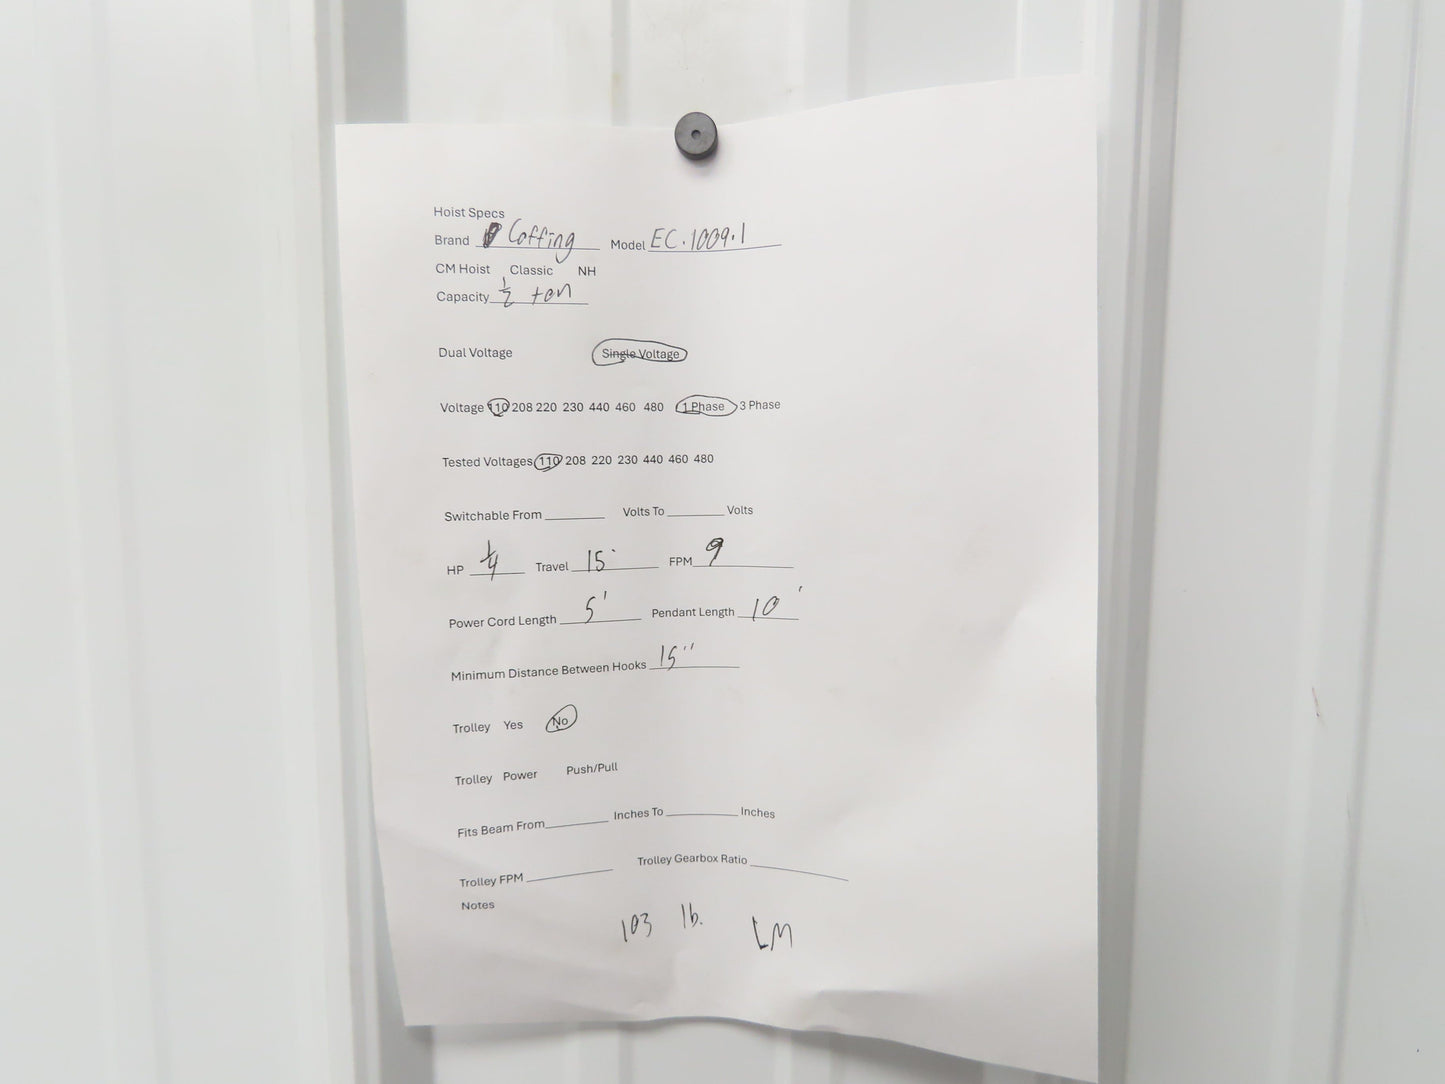 Hoist Specs
Brand Coffing Model EC.1009.1
CM Hoist Classic NH
Capacity 1/2 ton
Dual Voltage Single Voltage
Voltage 110 208 220 230 440 460 480 1 Phase 3 Phase
Tested Voltages 110 208 220 230 440 460 480
Switchable From ________ Volts To ________ Volts
HP 1/4 Travel 15' FPM 9
Power Cord Length 5' Pendant Length 10'
Minimum Distance Between Hooks 15"
Trolley Yes No
Trolley Power Push/Pull
Fits Beam From ________ Inches To ________ Inches
Trolley FPM ________ Trolley Gearbox Ratio ________
Notes
103 lb. LM